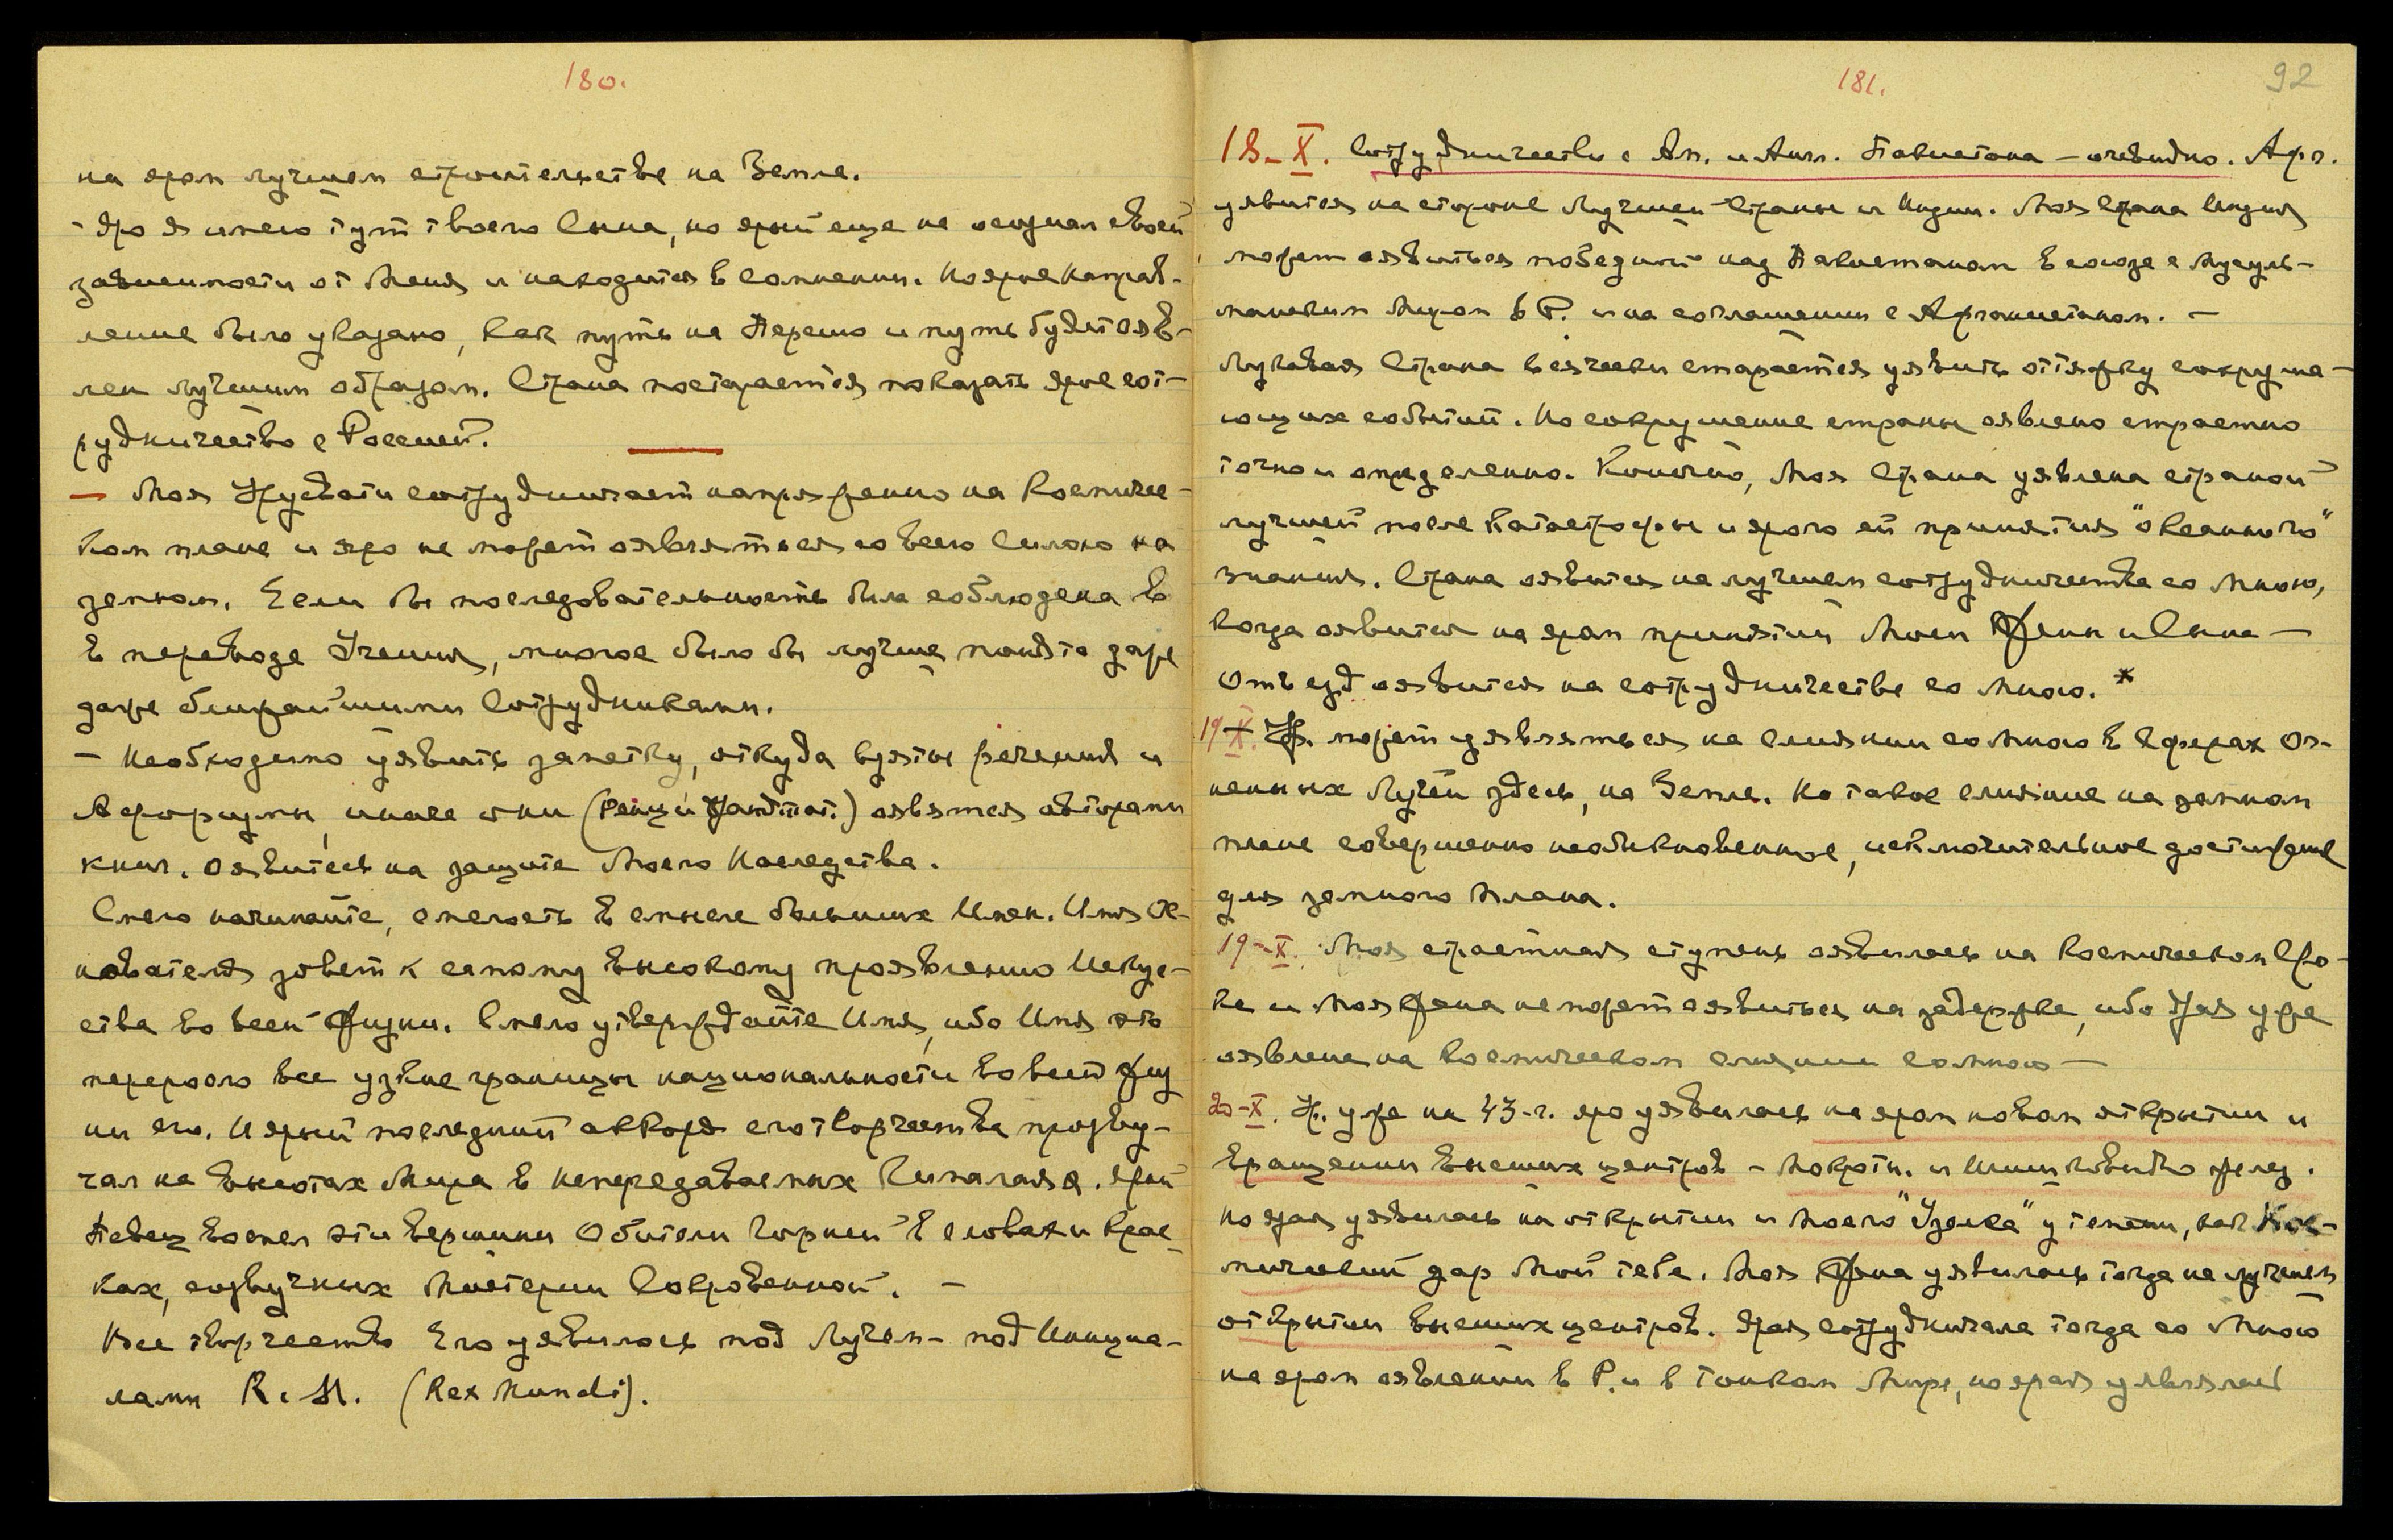 180.
на яром лучшем строительстве на Земле.
- Яро Я имею тут твоего Сына, но ярый еще не осознал своей
зависимости от Меня и находится в сомнении. Но ярое направ-
ление было указано, как путь на Персию и путь будет ояв-
лен лучшим образом. Страна постарается показать ярое сот-
рудничество с Россией.
— Моя Урусвати сотрудничает напряженно на Космичес-
ком плане и яро не может оявляться со всею Силою на
земном. Если бы последовательность была соблюдена в
в переводе Учения, многое было бы лучше понято даже
даже ближайшими Сотрудниками.
- Необходимо уявить заметку, откуда взяты речения и
Афоризмы, иначе они ( ) оявятся авторами
книг. Оявитесь на защите Моего Наследства.
Смело начинайте, смелость в смысле больших Имен. Имя Ос-
нователя зовет к самому высокому проявлению Искус-
ства во всей жизни. Смело утверждайте Имя, ибо Имя это
переросло все узкие границы национальности во всей жиз
ни его. И ярый последний аккорд его творчества прозву-
чал на высотах Мира в непередаваемых Гималаях. Ярый
Певец воспел эти вершины Обители Горней в словах и крас-
ках, созвучных Мистерии Сокровенной. -
Все творчество Его уявилось под Лучем - под Инициа-
лами R. M. (Rex Mundi).
181.
92
18-X. Сотрудничество с Ам. и Англ. Пакистана - очевидно. Афг.
уявится на стороне Лучшей Страны и Индии. Моя Страна Индия
может оявиться победной над Пакистаном в союзе с Мусуль-
манским Миром в Р. и на соглашении с Афганистаном. -
Лукавая Страна всячески старается уявить оттяжку сокруша-
ющих событий. Но сокрушение страны оявлено страстно
точно и определенно. Конечно, Моя Страна уявлена страной
лучшей после Катастрофы и ярого ей принятия "океанного"
знания. Страна оявится на лучшем сотрудничестве со Мною,
когда оявится на яром принятии Моей Жены и Сына —
Отъезд оявится на сотрудничестве со Мною. *
19-X. Ур. может уявляться на слиянии со Мною в Сферах Ог-
ненных Лучей здесь, на Земле. Но такое слияние на земном
плане совершенно необыкновенное, исключительное достижение
для земного плана.
19-X. Моя страстная ступень оявилась на Космическом Сро-
ке и Моя Жена не может оявиться на задержке, ибо Ярая уже
оявлена на Космическом слиянии со Мною —
20-X. У. уже на 43-г. яро уявилась на яром новом открытии и
вращении высших центров - и Шишковидно желез.
но ярая уявилась на открытии и Моего "Узелка" у темени, как Кос-
мический дар Мой тебе. Моя Жена уявилась тогда на лучшем
открытии высших центров. Ярая сотрудничала тогда со Мною
на яром оявлении в Р. и в Тонком Мире, но ярая уявлялась